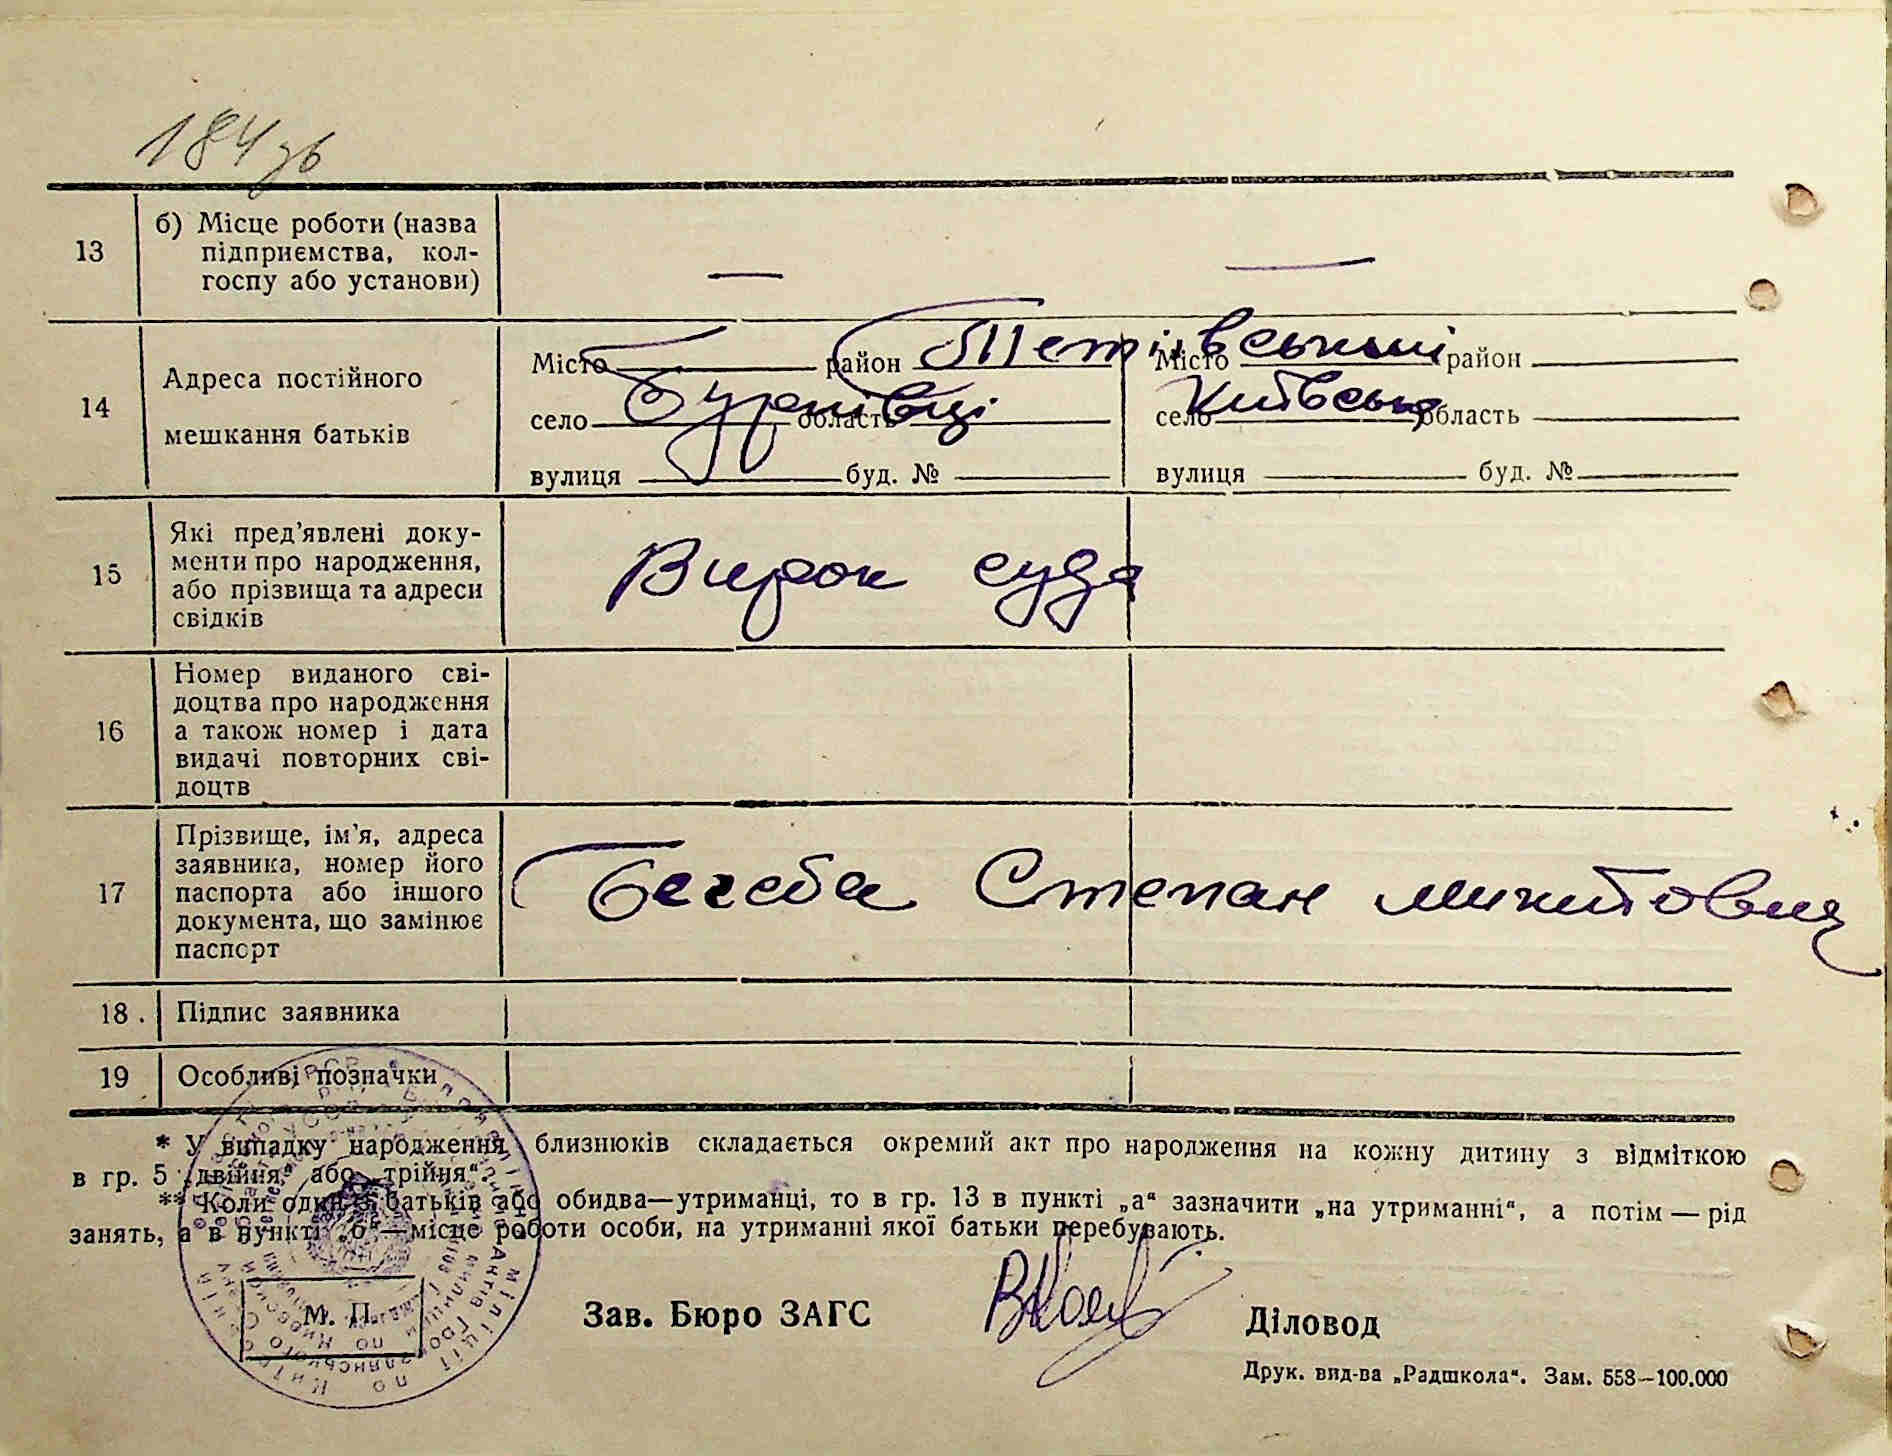 184 зв
13 б) Місце роботи (назва
підприємства, кол-
госпу або установи) — —
14 Адреса постійного
мешкання батьків
Місто район Тетіївський Місто район
село область Київська село область
вулиця буд. № вулиця буд. №
15 Які пред'явлені доку-
менти про народження,
або прізвища та адреси
свідків
Вирок суда
16 Номер виданого сві-
доцтва про народження
а також номер і дата
видачі повторних сві-
доцтв
17 Прізвище, ім'я, адреса
заявника, номер його
паспорта або іншого
документа, що замінює
паспорт
Степан Микитович
18. Підпис заявника
19 Особливі позначки
* У випадку народження близнюків складається окремий акт про народження на кожну дитину з відміткою
в гр. 5 „двійня“ або „трійня“.
** Коли один з батьків або обидва—утриманці, то в гр. 13 в пункті „а“ зазначити „на утриманні“, а потім — рід
занять, а в пункті „б“—місце роботи особи, на утриманні якої батьки перебувають.
М. П.
Зав. Бюро ЗАГС
Діловод
Друк. вид-ва „Радшкола“. Зам. 558—100.000